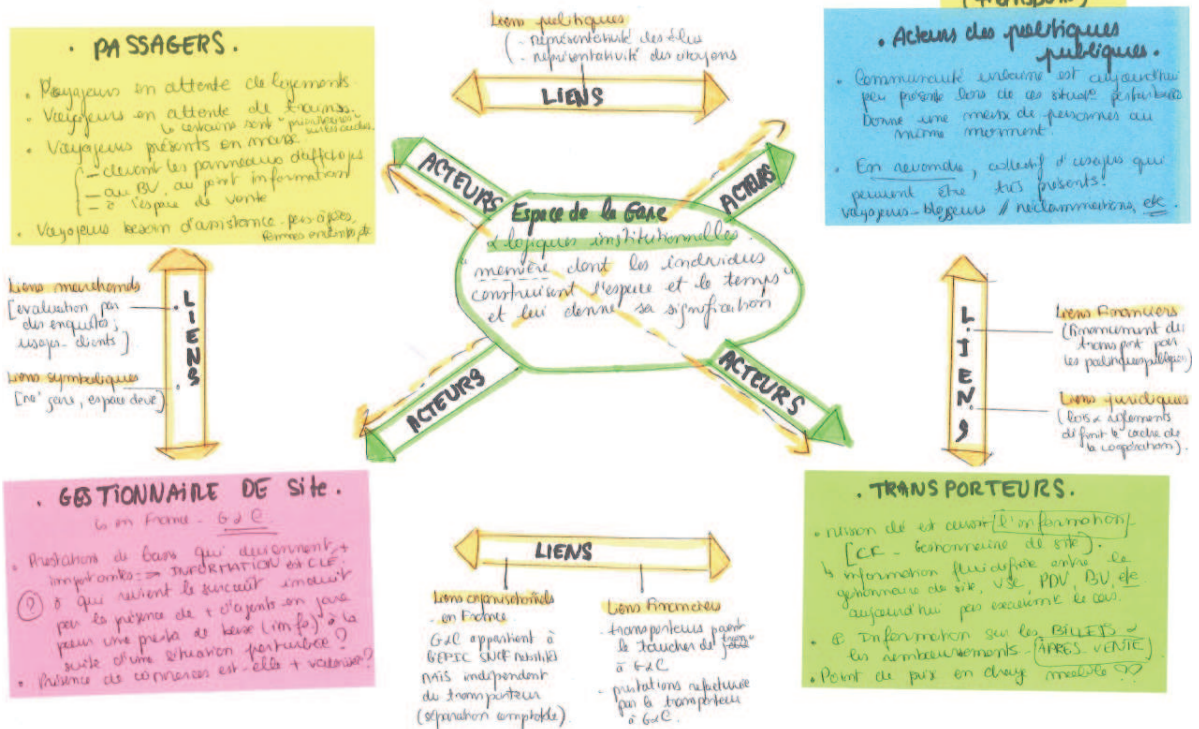 (transports)
. PASSAGERS.
. Voyageurs en attente de logements.
. Voyageurs en attente de trains.
↳ certains sont "prioritaires"
. Voyageurs présents en masse
— devant les panneaux d'affichages
— au BV, au point information
— à l'espace de vente
. Voyageurs besoin d'assistance - pers agées,
femmes enceintes, etc
Liens politiques
(- représentativité des élus
- représentativité des citoyens
LIENS
. Acteurs des politiques
publiques.
. Communauté urbaine est aujourd'hui
peu présente lors de ces situat° perturbées
Donne une masse de personnes au
même moment.
. En revanche, collectif d'usagers qui
peuvent être très présents!
voyageurs-bloggeurs // réclammations, etc.
ACTEURS
ACTEURS
Espace de la Gare
& logiques institutionnelles.
"manière dont les individus
construisent l'espace et le temps"
et lui donne sa signification
ACTEURS
ACTEURS
Liens marchands
[évaluation par
des enquêtes;
usagers-clients]
Liens symboliques
[no' gare, espace dové]
LIENS
LIENS
Liens Financiers
(financement du
transport par
les politiques publiques)
Liens juridiques
(lois & règlements
définit le cadre de
la coopération).
. GESTIONNAIRE DE Site.
↳ en France - G&C
. Prestations de base qui deviennent +
importantes => INFORMATION est CLÉ.
? à qui revient le surcoût induit
par la présence de + d'agents en gare
pour une presta de base (info) à la
suite d'une situation perturbée?
. Présence de commerces est-elle + valorisée?
LIENS
Liens organisationnels
- en France
G&C appartient à
l'EPIC SNCF Mobilités
mais indépendant
du transporteur
(séparation comptable).
Liens Financiers
- transporteurs paient
le toucher de
à G&C
- prestations refacturée
par le transporteur
à G&C.
. TRANSPORTEURS.
. mission clé est l'information
[CF - Gestionnaire de site).
↳ information fluidifiée entre le
gestionnaire de site, VSL, PDV, BV, etc
aujourd'hui pas le cas.
. ⊕ Information sur les BILLETS &
les remboursements - (APRES-VENTE)
. Point de prix en charge mobile ??